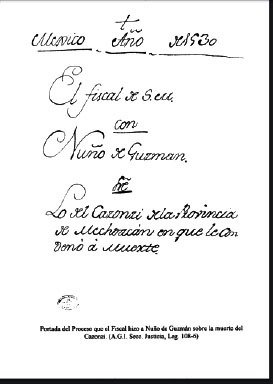 Mexico Año de 1530
El fiscal de S.M.
con
Nuño de Guzman.
Sre
Lo del Cazonzi de la Provincia
de Mechoacán en que le con
denó á muerte.
Portada del Proceso que el Fiscal hizo a Nuño de Guzmán sobre la muerte del
Cazonzi. (A.G.I. Secc. Justicia, Leg. 108-6)